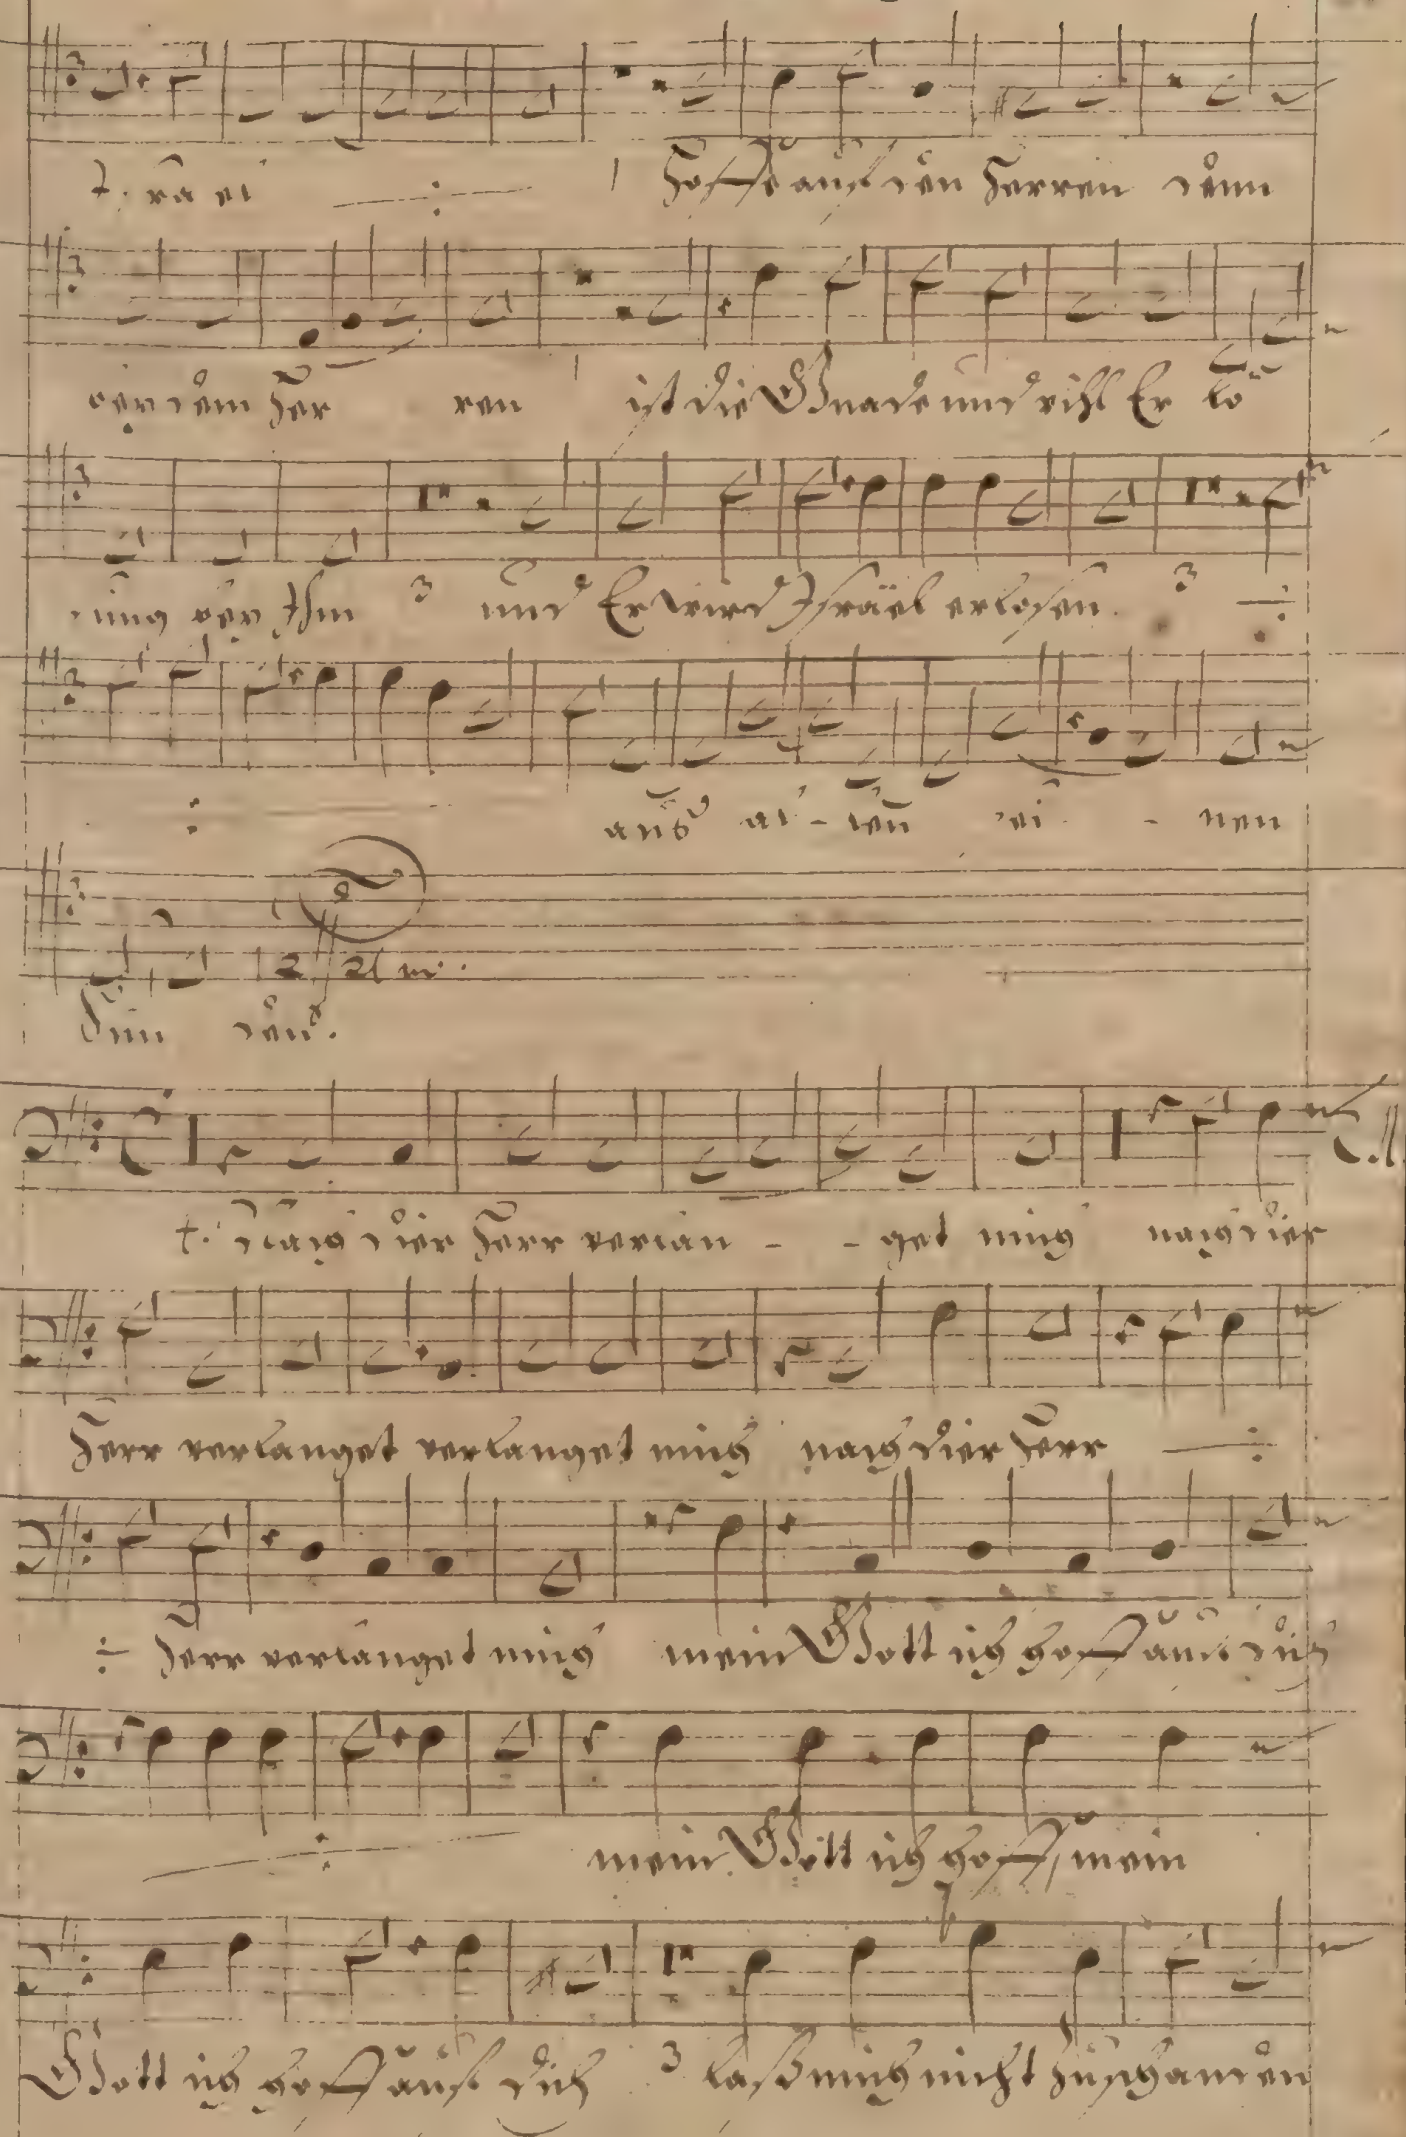 t: ra el ÷ hoffe auf den Herren denn
bey dem Her ren ist die Gnade und vihl Er lö
sung bey Ihm 3 und Er wird Israël erlosen. 3 ÷
÷ aus al - len sei - nen
Sün den.
t: Nach dier Herr verlan - - get mich nach dier
Herr verlanget verlanget mich nach dier Herr ÷
÷ Herr verlanget mich mein Gott ich hoff auf dich
÷ mein Gott ich hoff, mein
Gott ich hoff auf dich 3 laß mich nicht zuschanden